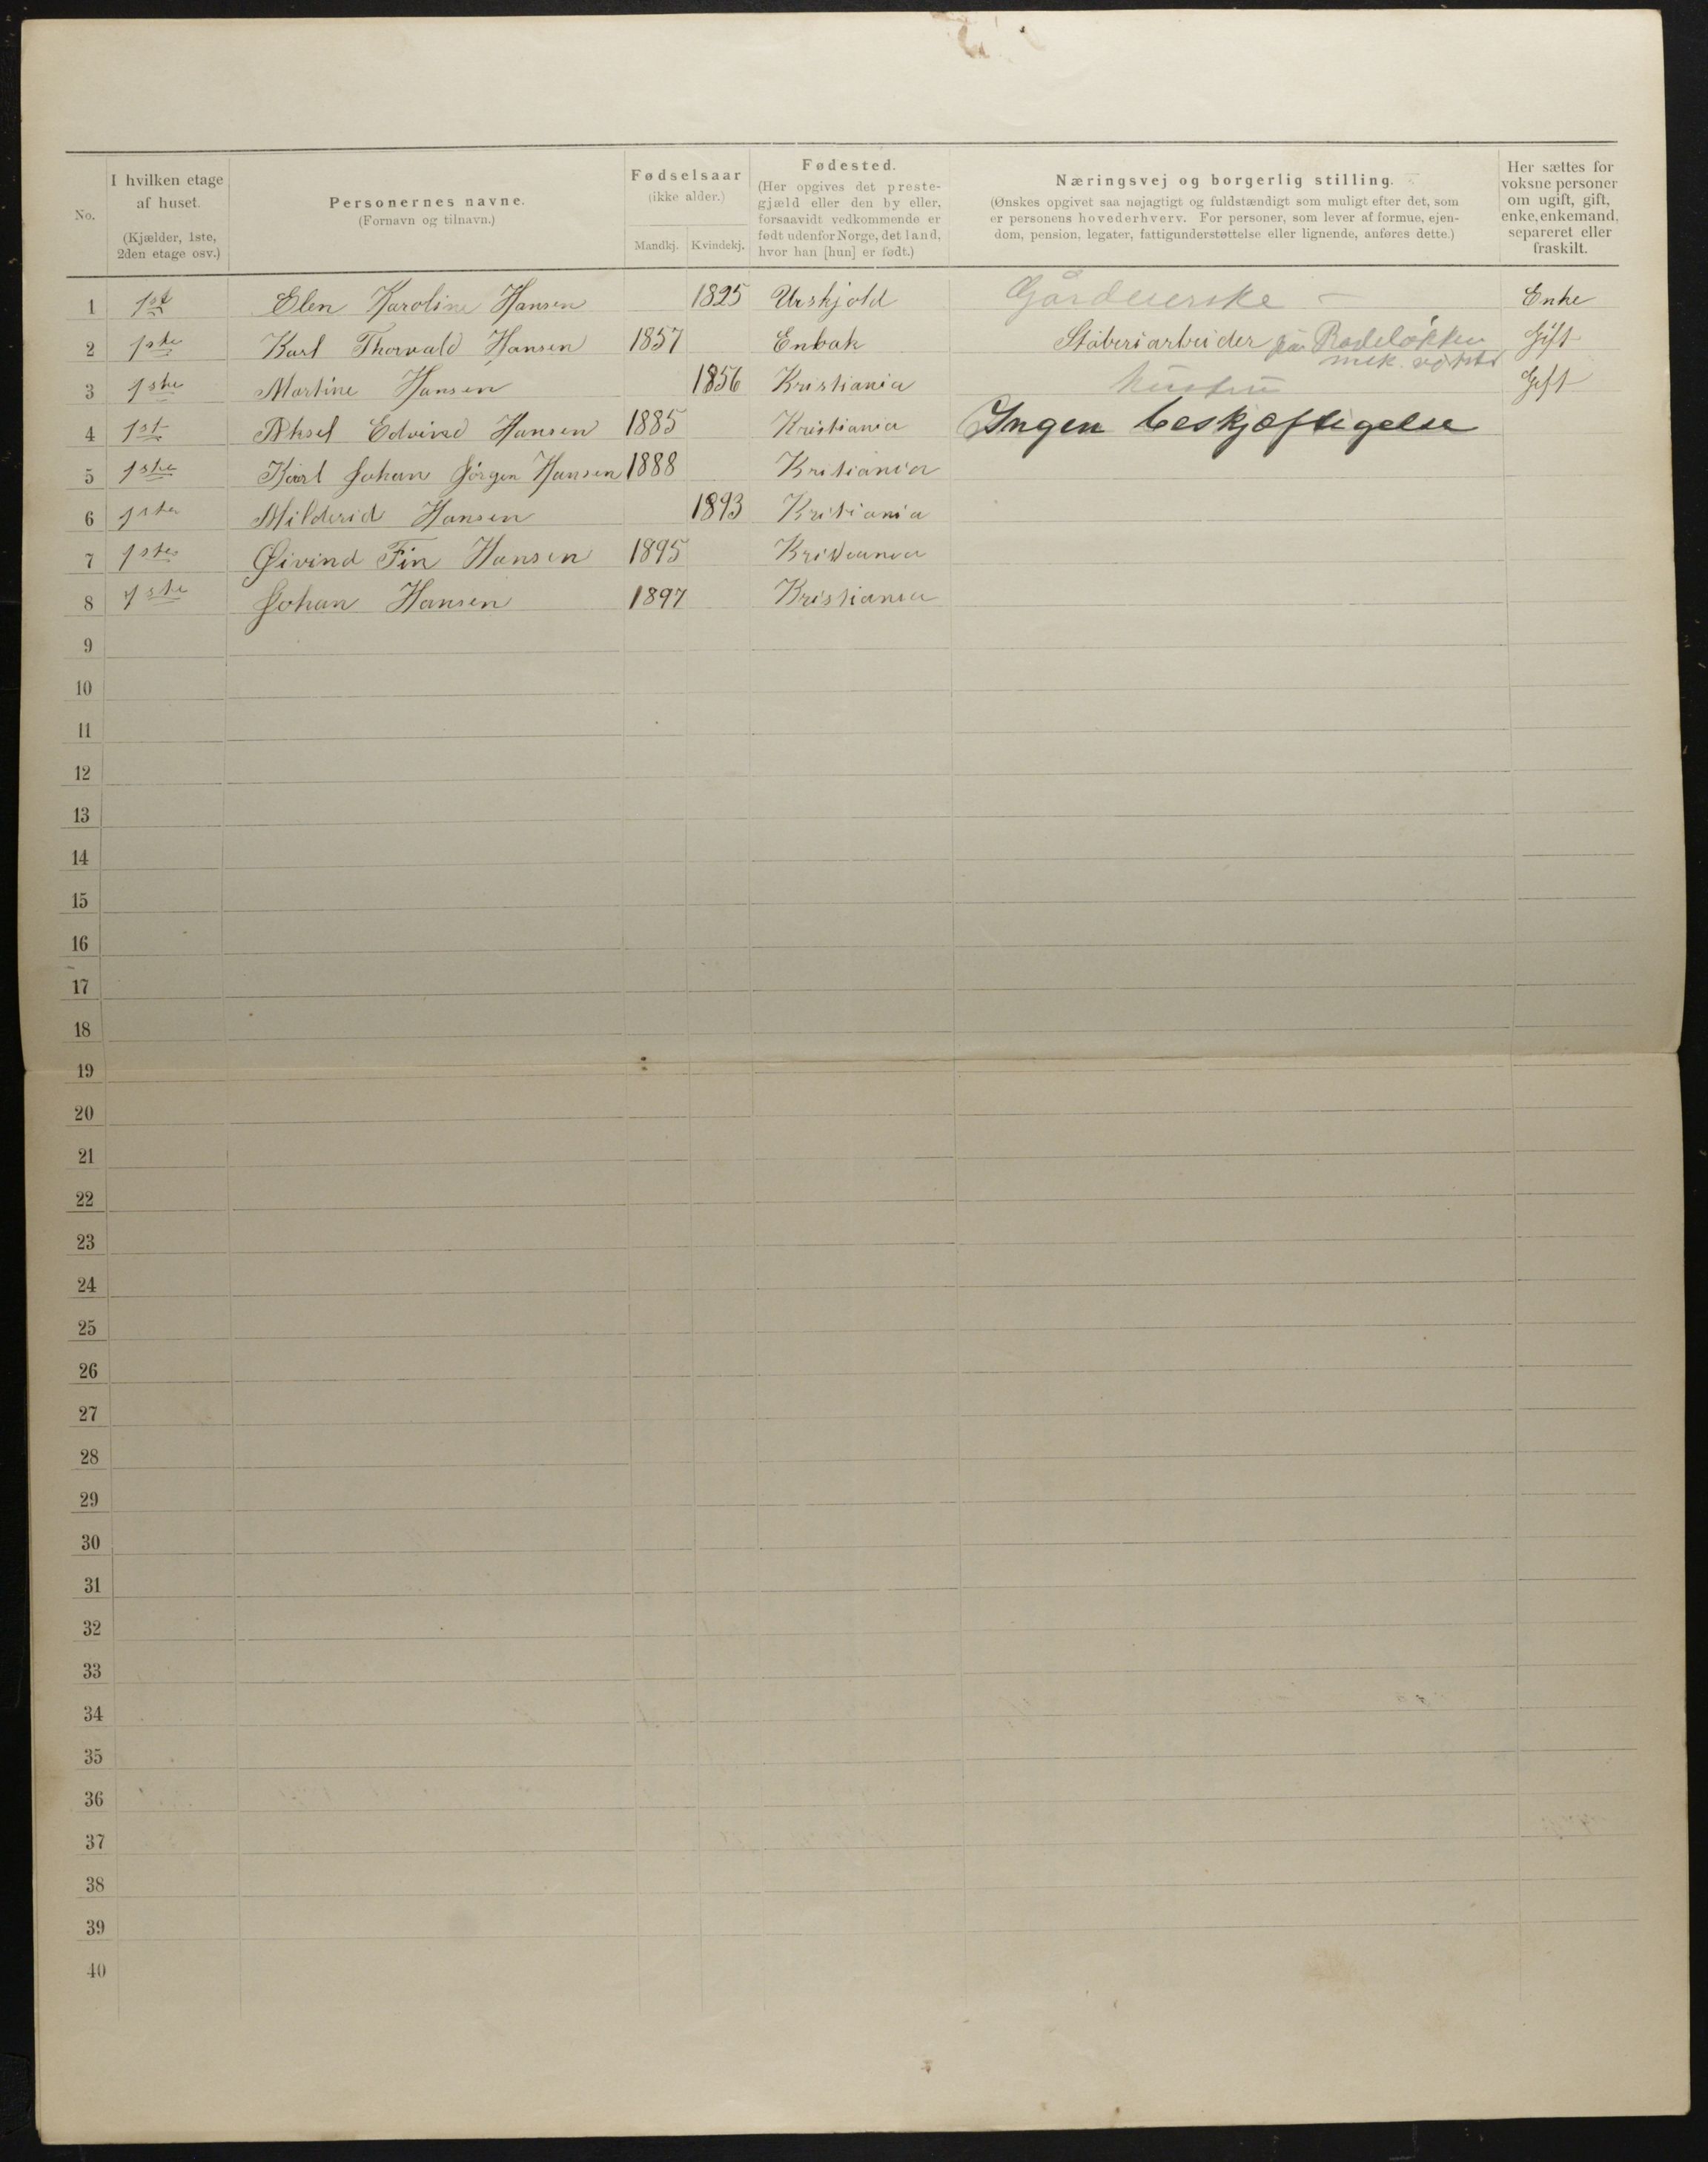 No.
I hvilken etage af huset.
(Kjælder, 1ste, 2den etage osv.)
Personernes navne.
(Fornavn og tilnavn.)
Fødselsaar
(ikke alder.)
Mandkj. Kvindekj.
Fødested.
(Her opgives det prestegjæld eller den by eller, forsaavidt vedkommende er født udenfor Norge, det land, hvor han [hun] er født.)
Næringsvej og borgerlig stilling.
(Ønskes opgivet saa nøjagtigt og fuldstændigt som muligt efter det, som
er personens hovederhverv. For personer, som lever af formue, ejen-
dom, pension, legater, fattigunderstøttelse eller lignende, anføres dette.)
Her sættes for voksne personer om ugift, gift, enke, enkemand, separeret eller fraskilt.
1 1st Elen Karoline Hansen 1825 Urskjold Gårdeierske – Enke
2 1ste Karl Thorvald Hansen 1857 Enbak Støberiarbeider på Rodeløkken Gift
mek.
3 1ste Martine Hansen 1856 Kristiania hustru Gift
4 1st Aksel Edvind Hansen 1885 Kristiania Ingen beskjæftigelse
5 1ste Karl Johan Jörgen Hansen 1888 Kritiania
6 1ste Milderid Hansen 1893 Kritiania
7 1ste Øivind Fin Hansen 1895 Kristiania
8 1ste Johan Hansen 1897 Kristiania
9
10
11
12
13
14
15
16
17
18
19
20
21
22
23
24
25
26
27
28
29
30
31
32
33
34
35
36
37
38
39
40